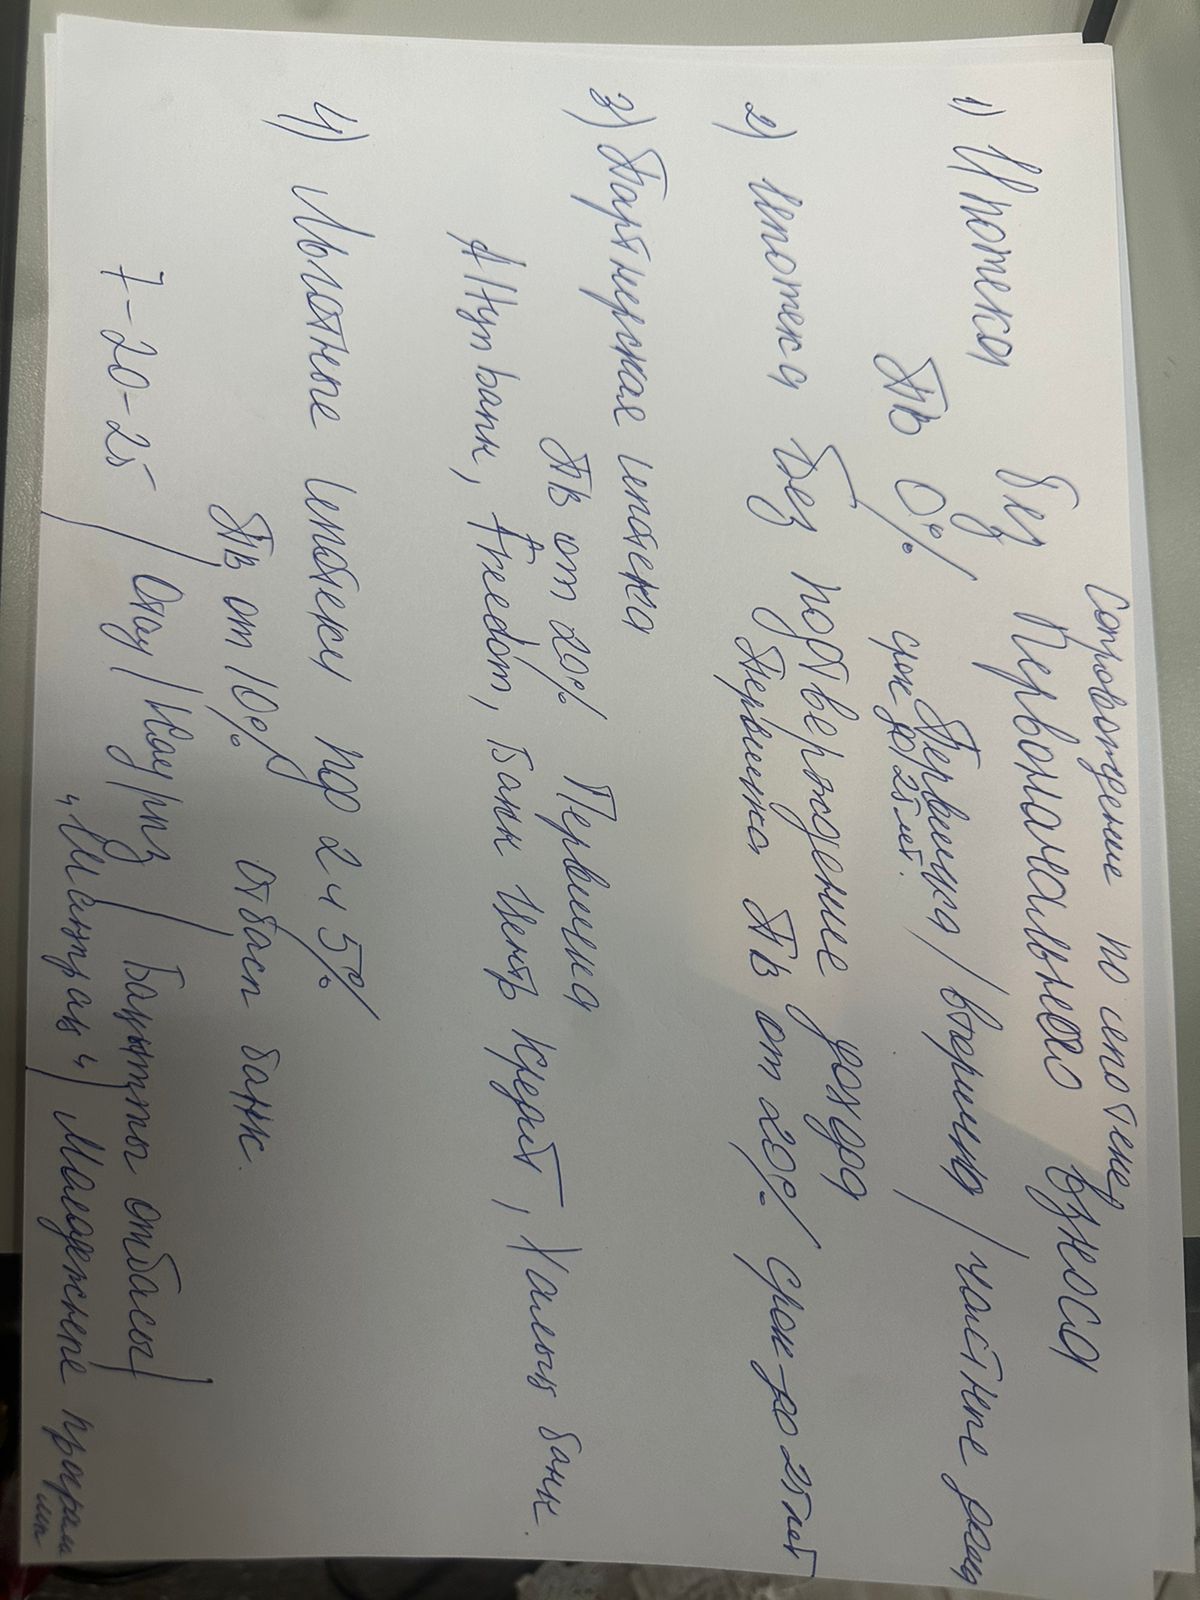 Сопровождение по ипотеке
1) Ипотека без Первоначального взноса
ПВ 0% Первичка / вторичка / частные дома
срок до 25 лет.
2) ипотека без подтверждение дохода
Первичка ПВ от 20% / срок до 25 лет
3) Партнерская ипотека
ПВ от 20% Первичка
Altyn банк, Freedom, Банк Центр кредит, Халык банк.
4) Льготные ипотеки под 2 и 5%
ПВ от 10% Отбасы банк.
7-20-25 / Отау / Наурыз / Бақытты отбасы /
"Шаңырақ" / Молодежные программы